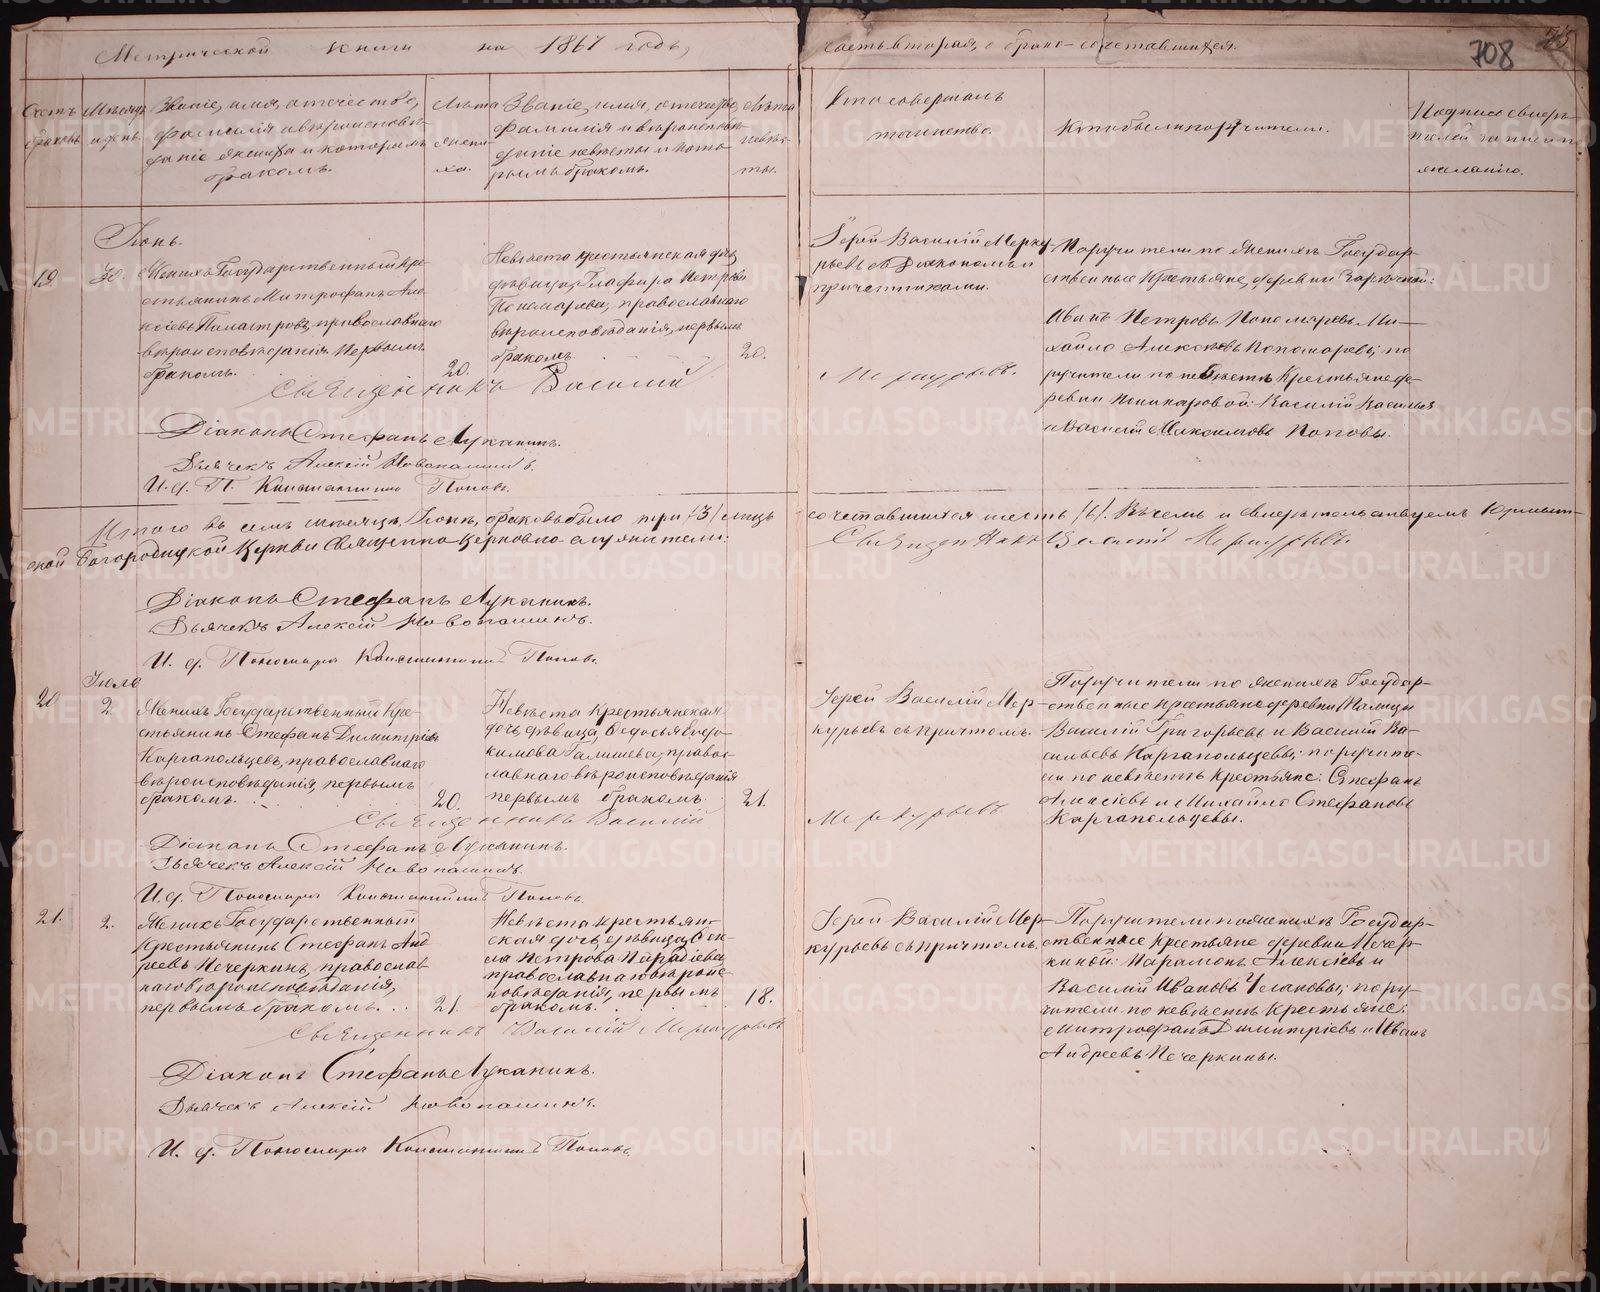 Метрической книги на 1867 годъ,
часть вторая, о брако-сочетавшихся.
708
Счетъ браковъ
Мѣсяцъ и день
Званіе, имя, отчество,
фамилія и вѣроисповѣ-
даніе жениха и которымъ
бракомъ.
Лѣта
жени-
ха.
Званіе, имя, отечество,
фамилія и вѣроисповѣ-
даніе невѣсты и кото-
рымъ бракомъ.
Лѣта
невѣс-
ты.
Кто совершалъ
таинство.
Кто были поручители.
Подпись свидѣ-
телей записи по
желанію.
Іюнь.
19.
30.
Женихъ Государственный кре-
стьянинъ Митрофанъ Але-
ксіевъ православнаго
вѣроисповѣданія первымъ
бракомъ.
20.
Невѣста крестьянская дочь
дѣвица, Глафира Петрова
Пономарева, православнаго
вѣроисповѣданія, первымъ
бракомъ.
20.
Іерей Василій Мерку-
рьевъ съ Діакономъ и
причетниками.
Поручители по женихѣ Государ-
ственные Крестьяне, деревни Заречной:
Иванъ Петровъ Пономаревъ Ми-
хайло Алексѣевъ Пономаревъ; по
ручители по невѣстѣ Крестьяне де-
ревни Василій Васильев
и Василій Максимовъ Поповы.
Священникъ Василій
Меркурьевъ.
Діаконъ Стефанъ Луканинъ.
Дьячекъ Алексій Новопашинъ.
И. д. П. Константинъ Поповъ.
Итого въ семъ мѣсяцѣ Іюнѣ, браковъ было три /3/ лицъ
сочетавшихся шесть /6/. Въ чемъ и свидѣтельствуемъ
ской Богородицкой Церкви Священно-церковно-служители:
Священникъ Василій Меркурьевъ.
Діаконъ Стефанъ Луканинъ.
Дьячекъ Алексій Новопашинъ.
И. д. Пономаря Константинъ Поповъ.
Іюль
20
2.
Женихъ Государственный Кре-
стьянинъ Стефанъ Димитріевъ
Каргапольцевъ, православнаго
вѣроисповѣданія, первымъ
бракомъ.
20.
Невѣста крестьянская
дочь дѣвица, Ѳедосья Евдо-
кимова Галишева, правос-
лавнаго вѣроисповѣданія
первымъ бракомъ.
21.
Іерей Василій Мер-
курьевъ съ причтомъ.
Поручители по женихѣ Государ-
ственные крестьяне деревни
Василій Григорьевъ и Василій Ва-
сильевъ Каргапольцевы; поручите-
ли по невѣстѣ крестьяне: Стефанъ
Алексіевъ и Михайло Стефановъ
Каргапольцевы.
Священникъ Василій
Меркурьевъ
Діаконъ Стефанъ Луканинъ.
Дьячекъ Алексій Новопашинъ.
И. д. Пономаря Константинъ Поповъ.
21.
2.
Женихъ Государственный
крестьянинъ Стефанъ Анд-
реевъ Печеркинъ, православ
наго вѣроисповѣданія,
первымъ бракомъ.
21.
Невѣста крестьян-
ская дочь, дѣвица,
Петрова
православнаго вѣроис-
повѣданія, первымъ
бракомъ.
18.
Іерей Василій Мер-
курьевъ съ причтомъ.
Поручители по женихѣ Государ-
ственные крестьяне деревни Печер-
киной: Парамонъ Алексіевъ и
Василій Ивановъ пору-
чители по невѣстѣ Крестьяне:
Митрофанъ Димитріевъ и Иванъ
Андреевъ Печеркины.
Священникъ Василій Меркурьевъ
Діаконъ Стефанъ Луканинъ.
Дьячекъ Алексій Новопашинъ.
И. д. Пономаря Константинъ Поповъ.
METRIKI.GASO-URAL.RU